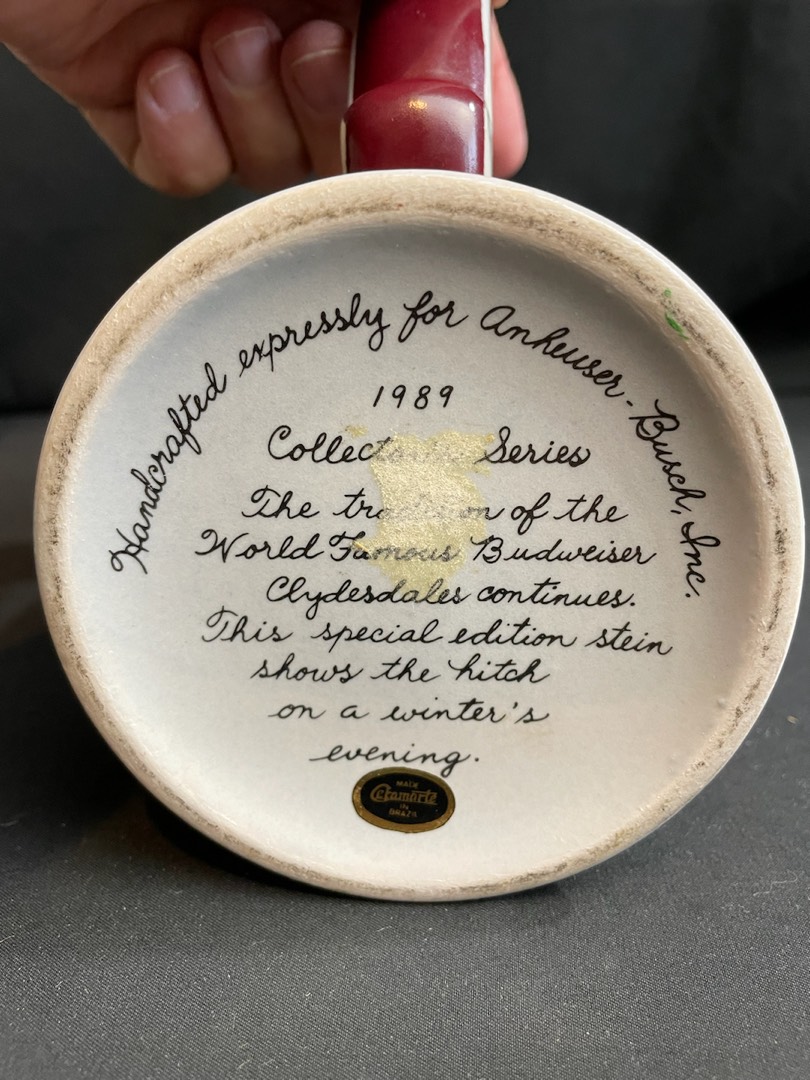 Handcrafted expressly for Anheuser-Busch, Inc.
1989
Series
The tradition of the
World Famous Budweiser
Clydesdales continues.
This special edition stein
shows the hitch
on a winter's
evening.
MADE
Ceramarte
IN
BRAZIL